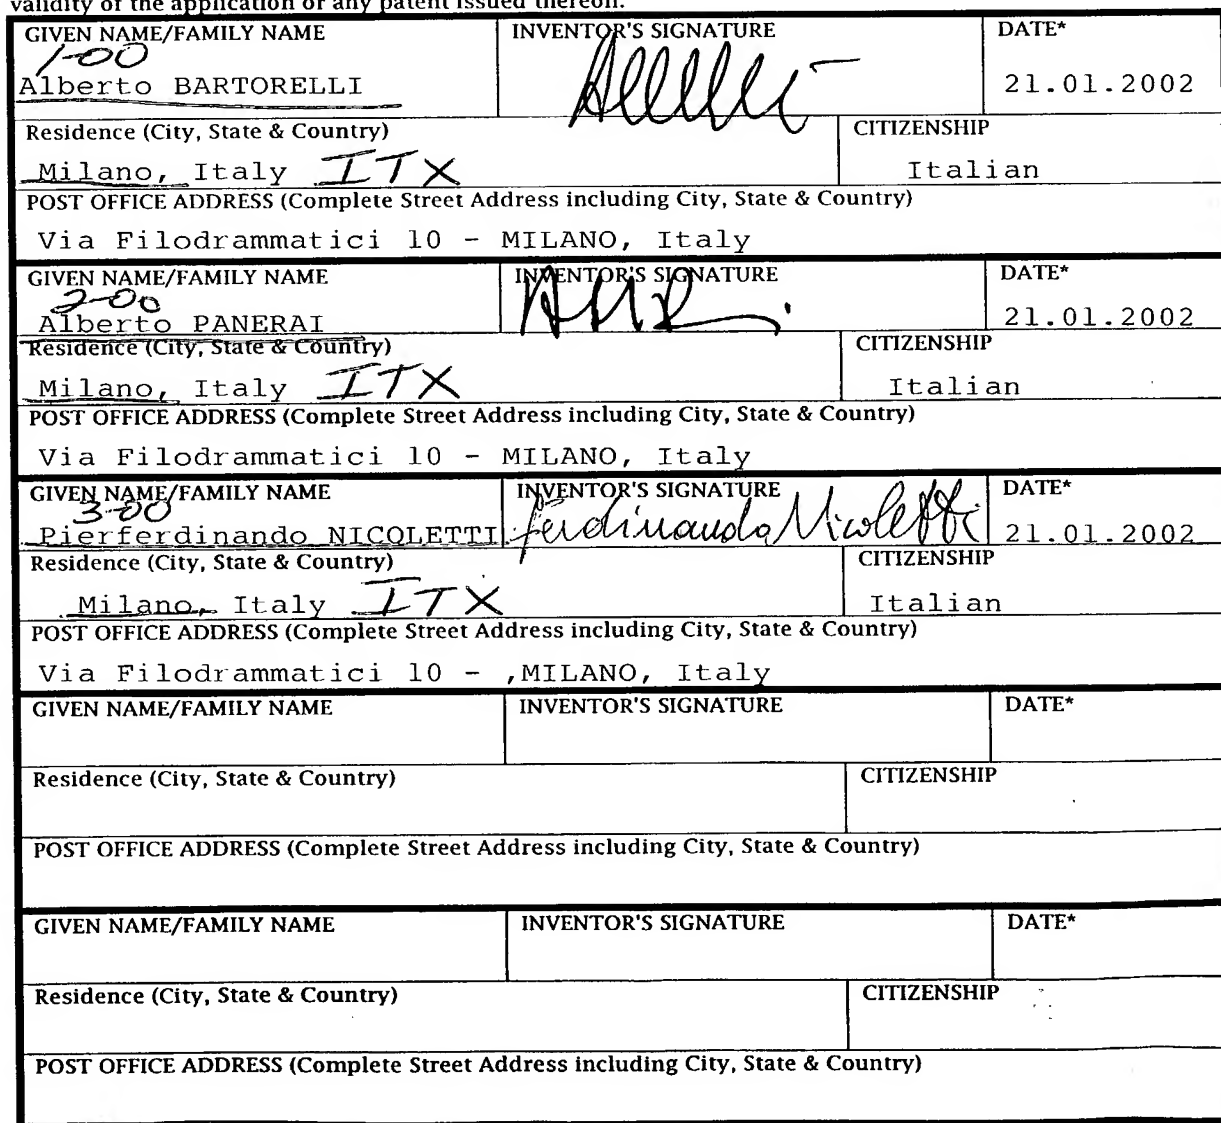 validity of the application or any patent issued thereon.
GIVEN NAME/FAMILY NAME INVENTOR'S SIGNATURE DATE*
1-00
Alberto BARTORELLI 21.01.2002
Residence (City, State & Country) CITIZENSHIP
Milano, Italy ITX Italian
POST OFFICE ADDRESS (Complete Street Address including City, State & Country)
Via Filodrammatici 10 - MILANO, Italy
GIVEN NAME/FAMILY NAME INVENTOR'S SIGNATURE DATE*
2-00
Alberto PANERAI 21.01.2002
Residence (City, State & Country) CITIZENSHIP
Milano, Italy ITX Italian
POST OFFICE ADDRESS (Complete Street Address including City, State & Country)
Via Filodrammatici 10 - MILANO, Italy
GIVEN NAME/FAMILY NAME INVENTOR'S SIGNATURE DATE*
3-00
Pierferdinando NICOLETTI ferdinando Nicoletti 21.01.2002
Residence (City, State & Country) CITIZENSHIP
Milano, Italy ITX Italian
POST OFFICE ADDRESS (Complete Street Address including City, State & Country)
Via Filodrammatici 10 - ,MILANO, Italy
GIVEN NAME/FAMILY NAME INVENTOR'S SIGNATURE DATE*
Residence (City, State & Country) CITIZENSHIP
POST OFFICE ADDRESS (Complete Street Address including City, State & Country)
GIVEN NAME/FAMILY NAME INVENTOR'S SIGNATURE DATE*
Residence (City, State & Country) CITIZENSHIP
POST OFFICE ADDRESS (Complete Street Address including City, State & Country)